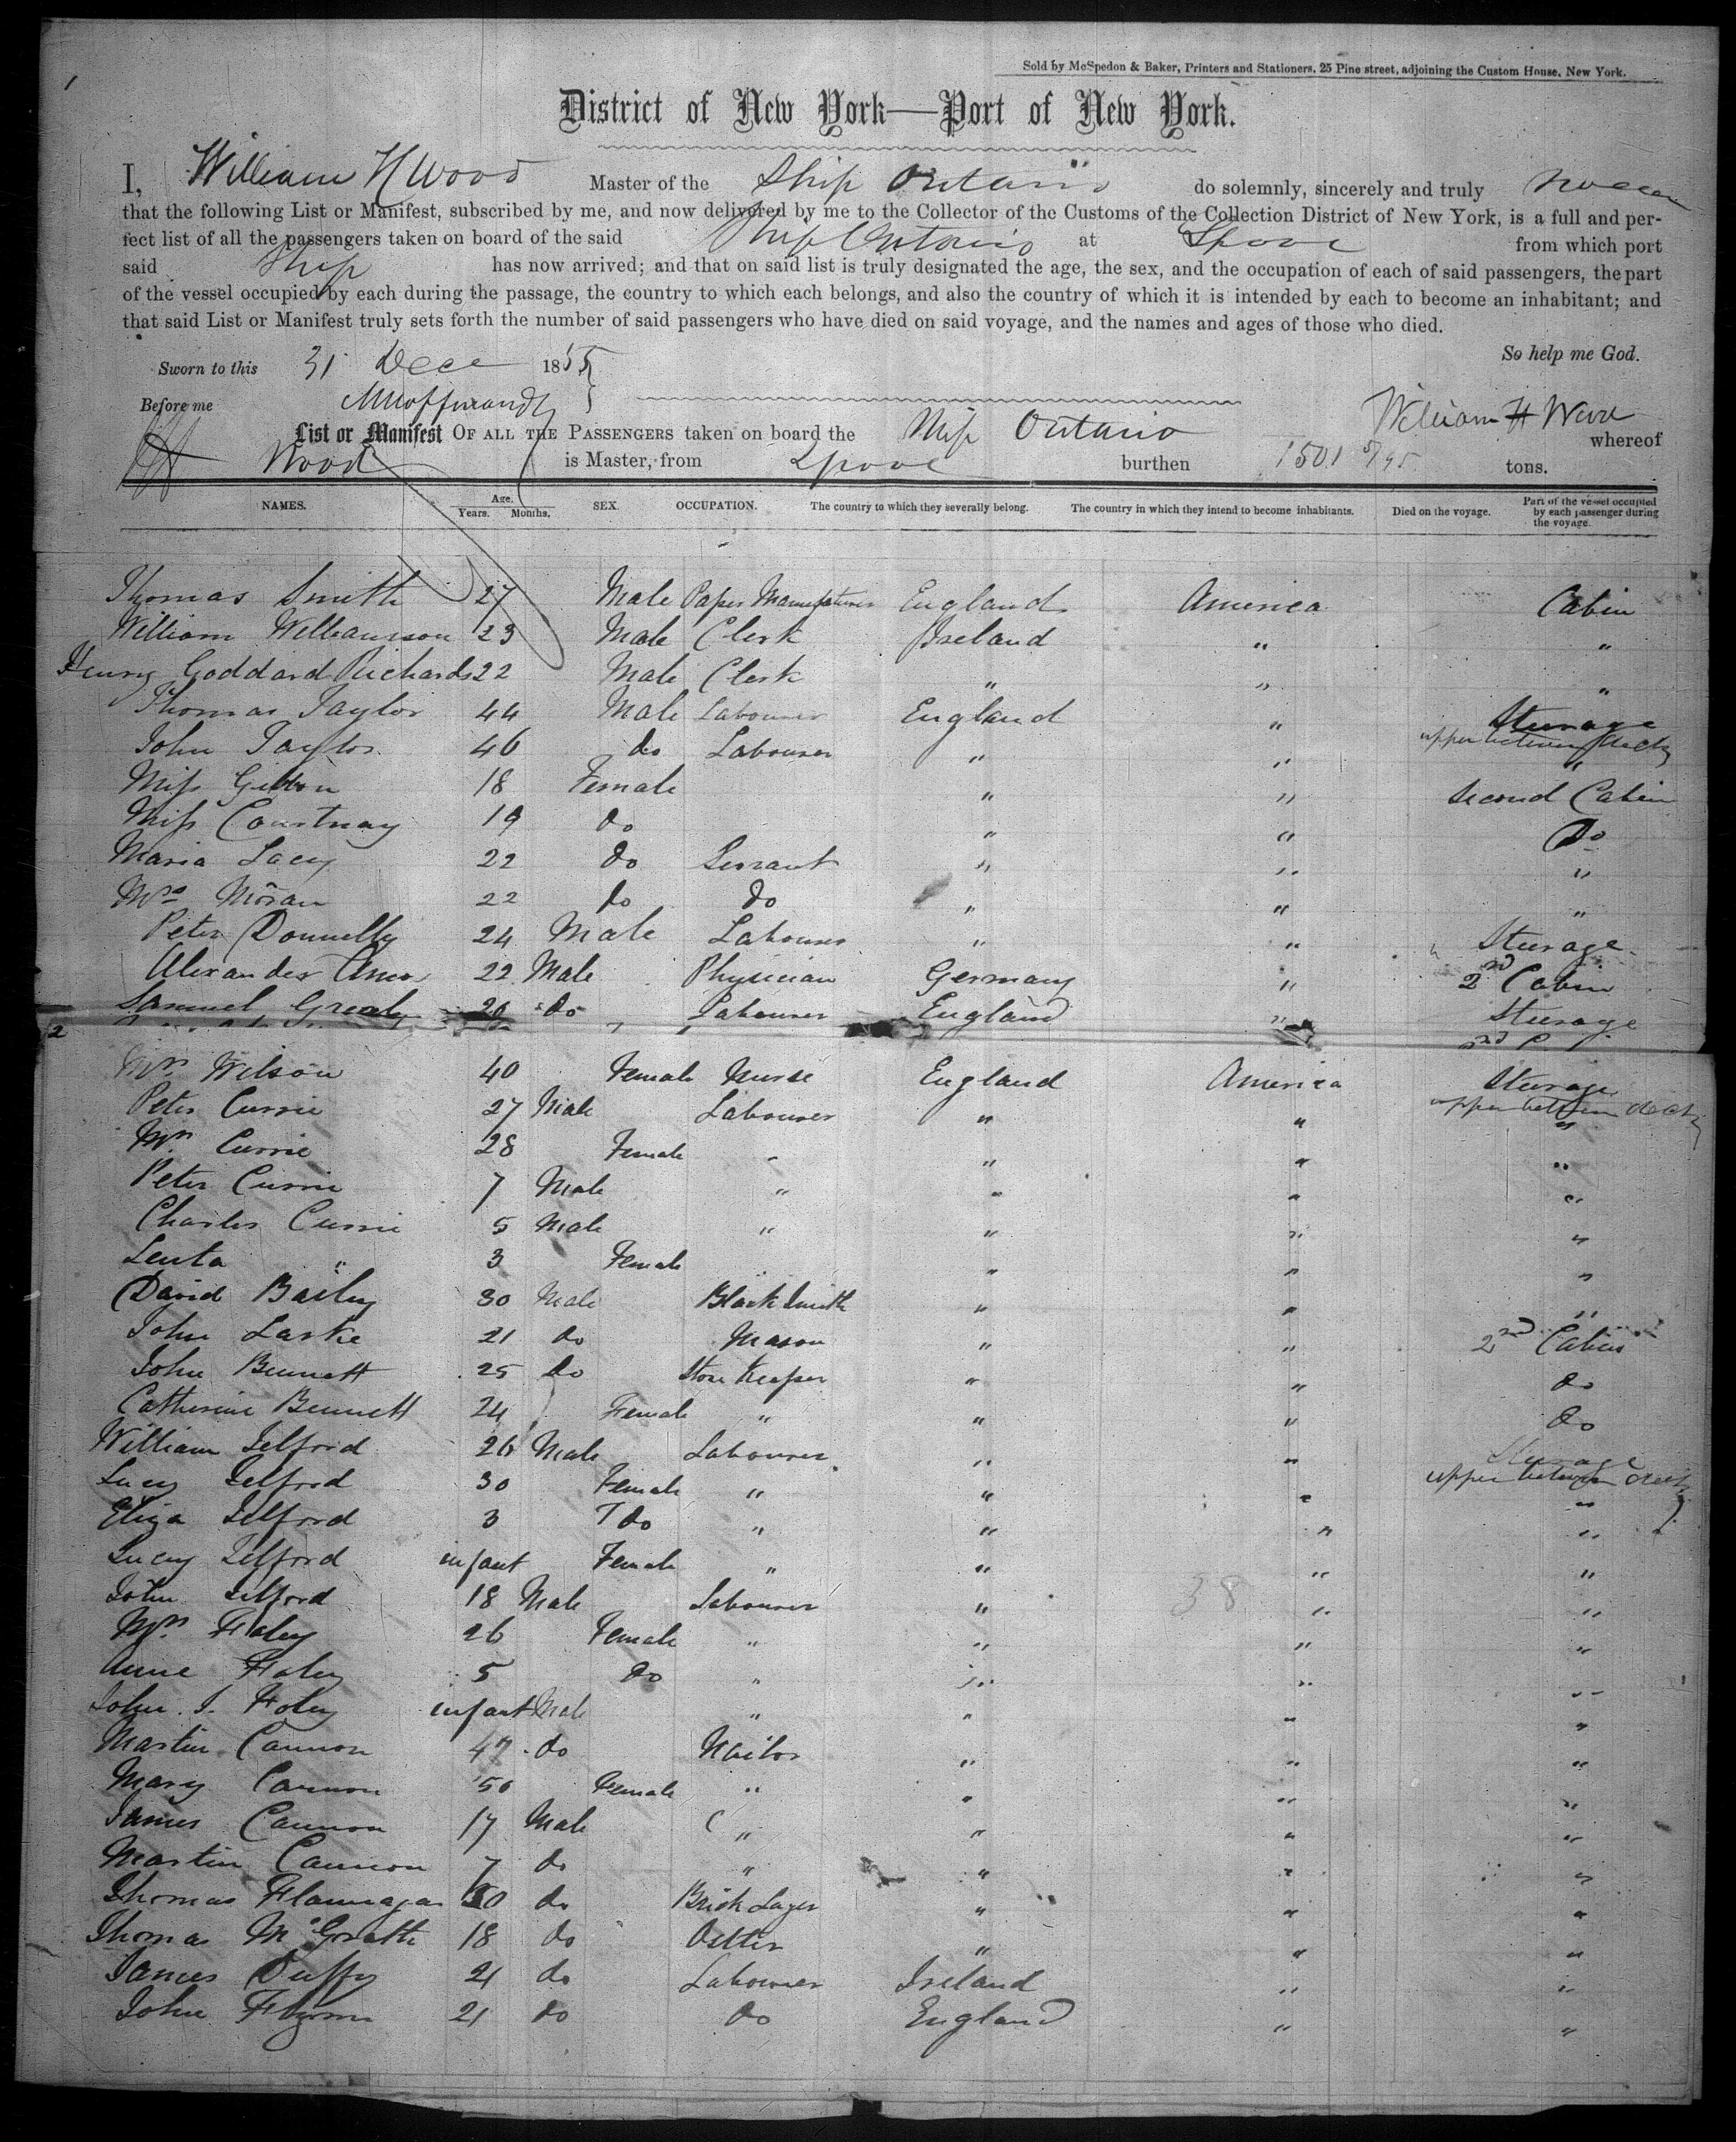 1
Sold by McSpedon & Baker, Printers and Stationers, 25 Pine street, adjoining the Custom House, New York.
District of New York—Port of New York.
I, William H Wood Master of the Ship Ontario do solemnly, sincerely and truly swear
that the following List or Manifest, subscribed by me, and now delivered by me to the Collector of the Customs of the Collection District of New York, is a full and per-
fect list of all the passengers taken on board of the said Ship Ontario at Lpool from which port
said Ship has now arrived; and that on said list is truly designated the age, the sex, and the occupation of each of said passengers, the part
of the vessel occupied by each during the passage, the country to which each belongs, and also the country of which it is intended by each to become an inhabitant; and
that said List or Manifest truly sets forth the number of said passengers who have died on said voyage, and the names and ages of those who died.
So help me God.
Sworn to this 31 Dece 1855
Before me
William H Wood
List or Manifest OF ALL THE PASSENGERS taken on board the Ship Ontario whereof
Wood is Master, from Lpool burthen 1501 5/95 tons.
NAMES. Age. Years. Months. SEX. OCCUPATION. The country to which they severally belong. The country in which they intend to become inhabitants. Died on the voyage. Part of the vessel occupied by each passenger during the voyage.
Thomas Smith 27 Male Paper Manufacturer England America Cabin
William Williamson 23 Male Clerk Ireland " "
Henry Goddard Richards 22 Male Clerk " " "
Thomas Taylor 44 Male Labourer England " Steerage upper between decks
John Taylor 46 do Labourer " " "
Miss Gibbon 18 Female " " Second Cabin
Miss Courtnay 19 do " " Do
Maria Lacy 22 do Servant " " "
Mrs Moran 22 do do " " "
Peter Donnelly 24 Male Labourer " " Steerage
Alexander 22 Male Physician Germany " 2nd Cabin
Samuel Grealy 20 do Labourer England " Steerage
2
Mrs Wilson 40 Female Nurse England America Steerage upper between decks
Peter Currie 27 Male Labourer " " "
Mrs Currie 28 Female " " "
Peter Currie 7 Male " " " "
Charles Currie 5 Male " " " "
Leuta " 3 Female " " "
David Bailey 30 Male Black Smith " " "
John Laske 21 do Mason " " 2nd Cabin
John Bennett 25 do Store Keeper " " do
Catherine Bennett 24 Female " " " do
William Telford 26 Male Labourer " " Steerage upper between decks
Lucy Telford 30 Female " " " "
Eliza Telford 3 do " " " "
Lucy Telford infant Female " " " "
John Telford 18 Male Labourer " 38 " "
Mrs Foley 26 Female " " " "
Anne Foley 5 do " " " "
John J. Foley infant Male " " " "
Martin Cannon 47 do Nailor " " "
Mary Cannon 50 Female " " " "
James Cannon 17 Male " " " "
Martin Cannon 7 do " " " "
Thomas Flannagan 30 do Brick Layer " " "
Thomas McGrath 18 do " " "
James Duffy 21 do Labourer Ireland " "
John Flynn 21 do do England " "